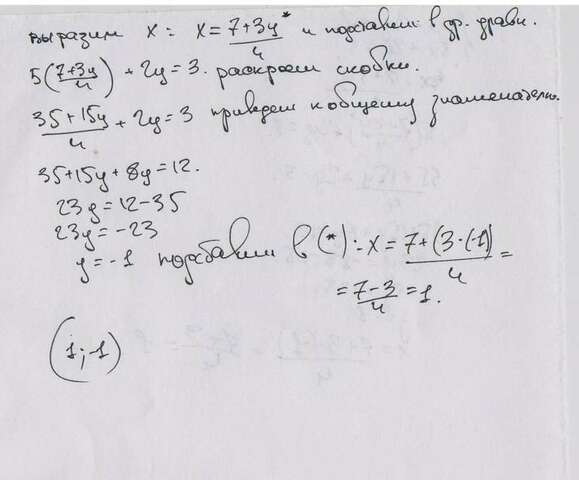 выразим x: x = 7+3y/4 * и подставим в др. уравн.
5(7+3y/4) + 2y = 3. раскроем скобки.
35+15y/4 + 2y = 3 приведем к общему знаменателю.
35+15y+8y=12.
23y = 12-35
23y = -23
y = -1 подставим в (*): x = 7+(3·(-1)/4 =
= 7-3/4 = 1.
(1;-1)